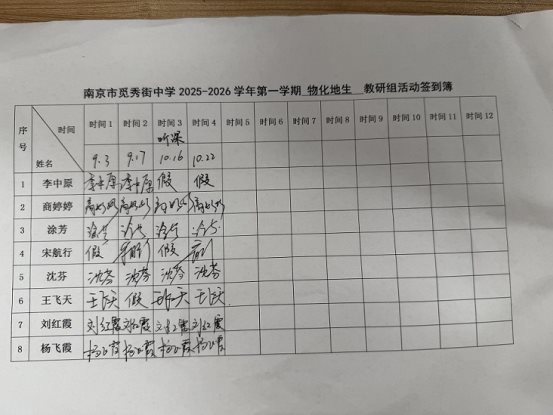 南京市觅秀街中学 2025-2026 学年第一学期 物化地生 教研组活动签到簿
序号 时间 姓名 时间 1 时间 2 时间 3 时间 4 时间 5 时间 6 时间 7 时间 8 时间 9 时间 10 时间 11 时间 12
听课
9.3 9.17 10.16 10.22
1 李中原 李中原 李中原 假 假
2 商婷婷 商婷婷 商婷婷 商婷婷 商婷婷
3 涂芳 涂芳 涂芳 涂芳 涂芳
4 宋航行 假 假
5 沈芬 沈芬 沈芬 沈芬 沈芬
6 王飞天 王飞天 假 王飞天 王飞天
7 刘红霞 刘红霞 刘红霞 刘红霞 刘红霞
8 杨飞霞 杨飞霞 杨飞霞 杨飞霞 杨飞霞